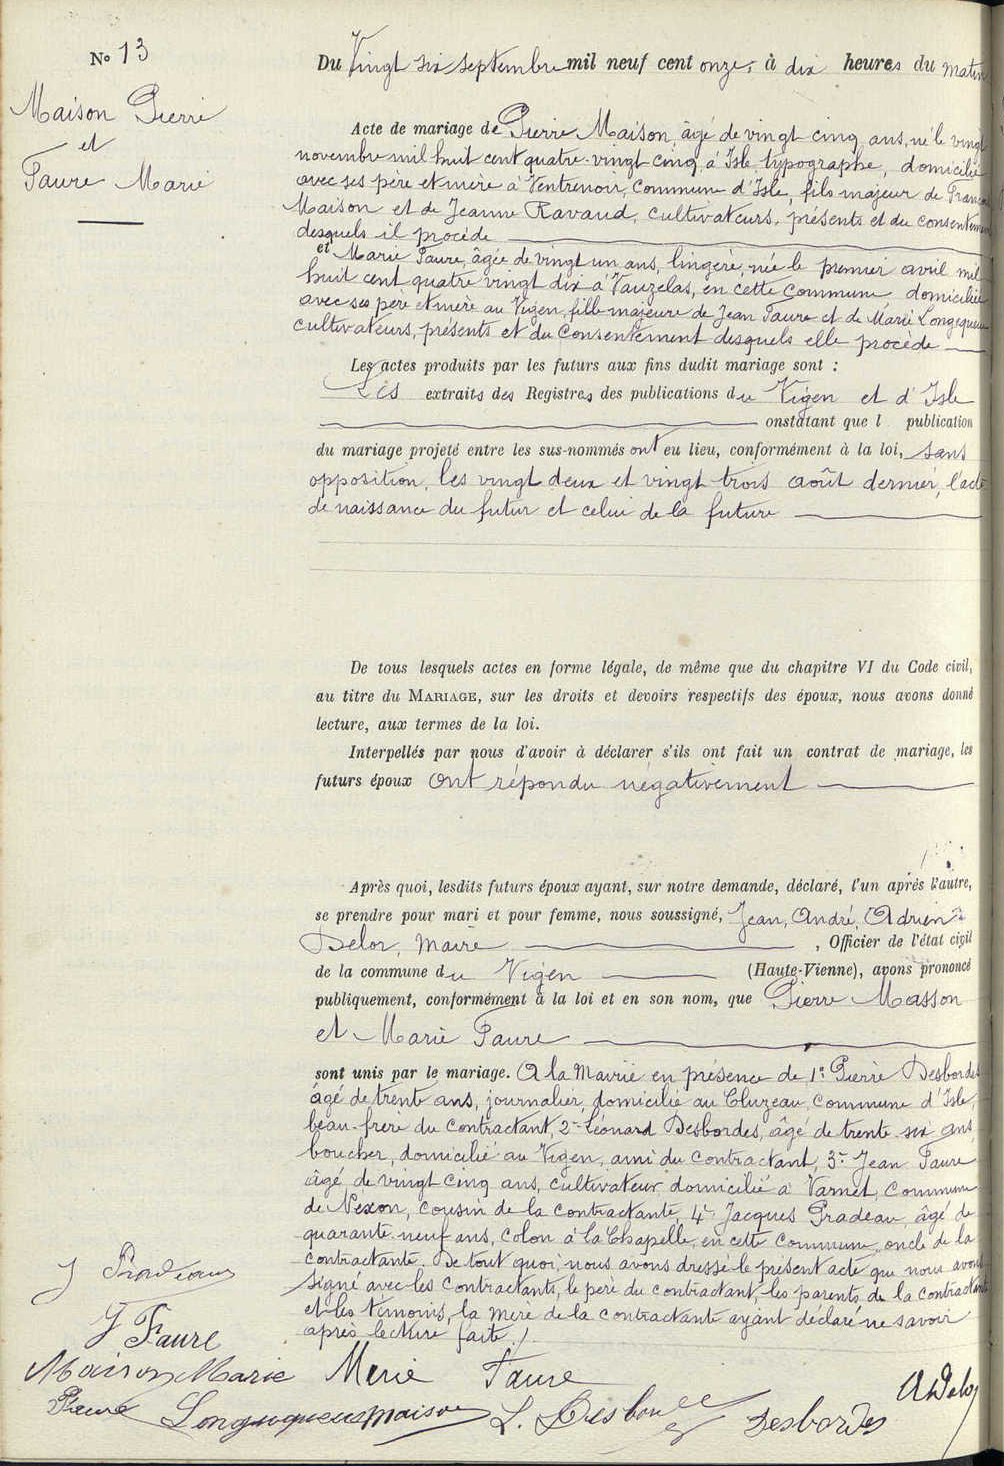 N° 13
Maison Pierre
et
Faure Marie
Du Vingt six septembre mil neuf cent onze, à dix heures du matin
Acte de mariage de Pierre Maison, âgé de vingt cinq ans, né le vingt
novembre mil huit cent quatre-vingt cinq, à Isle, typographe, domicilié
avec ses père et mère à Ventrenoir, Commune d'Isle, fils majeur de
Maison et de Jeanne Ravaud, cultivateurs, présents et du consentement
desquels il procède
et Marie Faure, âgée de vingt un ans, lingère, née le premier avril mil
huit cent quatre vingt dix à Vauzelas, en cette Commune, domiciliée
avec ses père et mère au Vigen, fille majeure de Jean Faure et de Marie Longequeue
cultivateurs, présents et du Consentement desquels elle procède
Les actes produits par les futurs aux fins dudit mariage sont :
Les extraits des Registres des publications du Vigen et d'Isle
onstatant que l publication
du mariage projeté entre les sus-nommés ont eu lieu, conformément à la loi, sans
opposition, les vingt deux et vingt trois août dernier, l'acte
de naissance du futur et celui de la future
De tous lesquels actes en forme légale, de même que du chapitre VI du Code civil,
au titre du MARIAGE, sur les droits et devoirs respectifs des époux, nous avons donné
lecture, aux termes de la loi.
Interpellés par nous d'avoir à déclarer s'ils ont fait un contrat de mariage, les
futurs époux Ont répondu négativement
Après quoi, lesdits futurs époux ayant, sur notre demande, déclaré, l'un après l'autre,
se prendre pour mari et pour femme, nous soussigné, Jean, André, Adrien
Delor, Maire , Officier de l'état civil
de la commune du Vigen (Haute-Vienne), avons prononcé
publiquement, conformément à la loi et en son nom, que Pierre Masson
et Marie Faure
sont unis par le mariage. A la Mairie en présence de 1° Pierre Desbordes
âgé de trente ans, journalier, domicilié au Cluzeau, Commune d'Isle,
beau-frère du contractant, 2° Léonard Desbordes, âgé de trente six ans,
boucher, domicilié au Vigen, ami du contractant, 3° Jean Faure
âgé de vingt cinq ans, cultivateur domicilié à Varnet, Commune
de Nexon, cousin de la contractante, 4° Jacques Pradeau, âgé de
quarante-neuf ans, colon à la Chapelle, en cette Commune, oncle de la
contractante. De tout quoi, nous avons dressé le présent acte que nous avons
signé avec les contractants, le père du contractant, les parents de la contractante
et les témoins, la mère de la contractante ayant déclaré ne savoir
après lecture faite./.
J Pradeau
J Faure
Maison Marie Marie Faure
Faure Longequeue maison L. Desbordes Desbordes ADelor